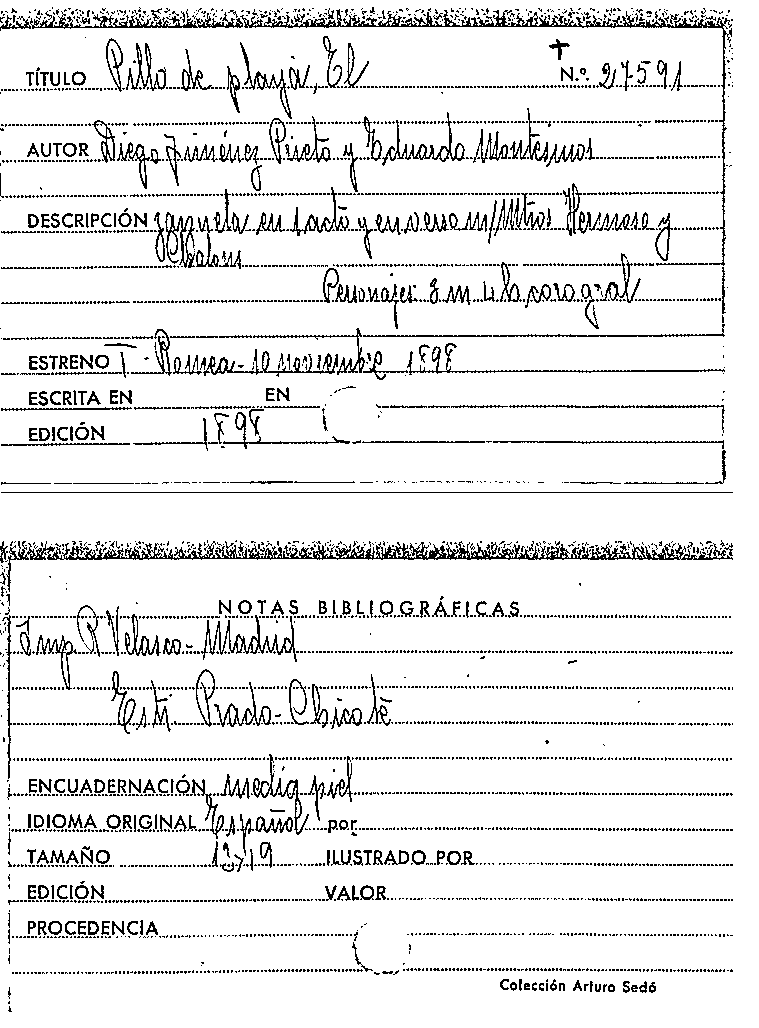 TÍTULO Pillo de playa, El Nº. 27591
AUTOR Diego Jiménez Prieto y Eduardo Montesinos
DESCRIPCIÓN zarzuela en 1 acto y en verso m/ Mtros Hermoso y
Chalons
Personajes: 8 m 4 h coro gral
ESTRENO T. Romea - 10 noviembre 1898
ESCRITA EN EN
EDICIÓN 1898
NOTAS BIBLIOGRÁFICAS
Imp R Velasco - Madrid
Estr. Prado - Chicote
ENCUADERNACIÓN media piel
IDIOMA ORIGINAL Español por
TAMAÑO 13x19 ILUSTRADO POR
EDICIÓN VALOR
PROCEDENCIA
Colección Arturo Sedó